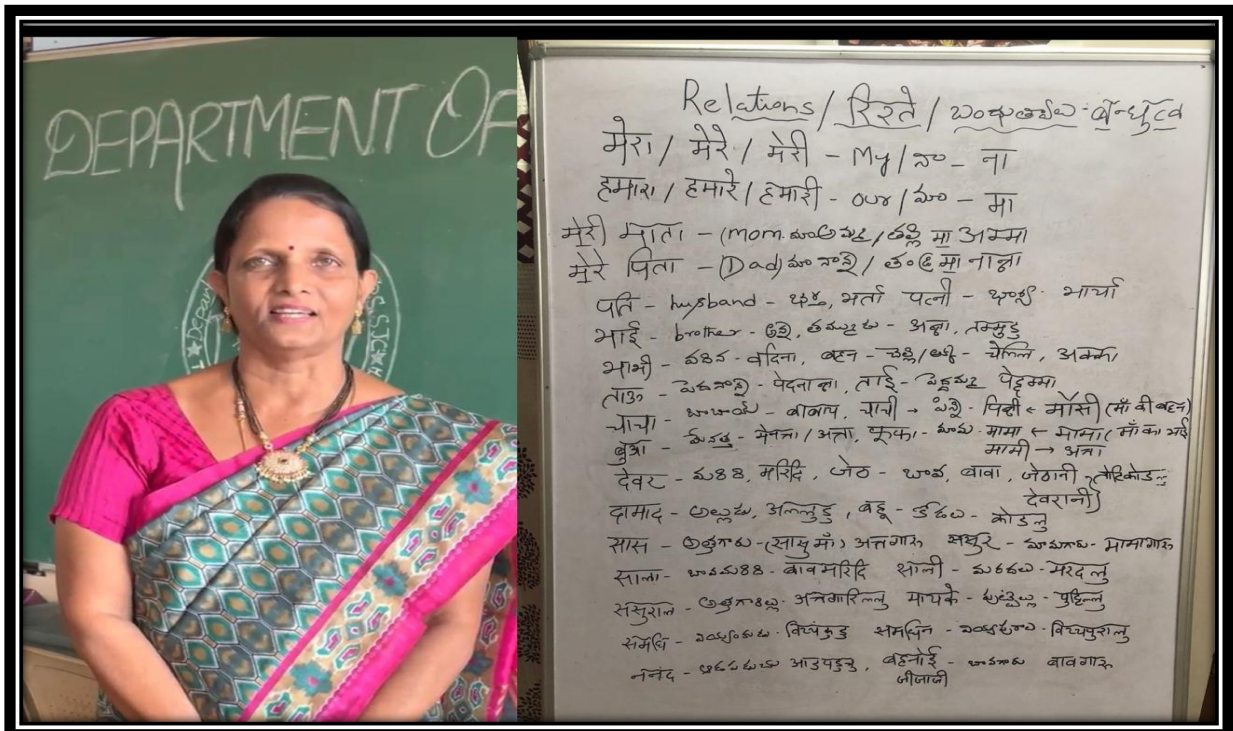 DEPARTMENT OF
Relations / रिश्ते / బంధుత్వాలు - बन्धुत्व
मेरा / मेरे / मेरी - My / నా - ना
हमारा / हमारे / हमारी - our / మా - मा
मेरी माता - (mom. మా అమ్మ / తల్లి मा अम्मा
मेरे पिता - (Dad) మా నాన్న / తండ్రి मा नान्ना
पति - husband - భర్త, भर्ता पत्नी - భార్య - भार्या
भाई - brother - అన్న, తమ్ముడు - अन्ना, तम्मुडु
भाभी - వదిన - वदिना, बहन - చెల్లి / అక్క - चेल्लि, अक्का
ताऊ - పెదనాన్న - पेदनान्ना, ताई - పెద్దమ్మ पेद्दम्मा
चाचा - బాబాయ్ - बाबाय, चाची → పిన్ని - पिन्नी ← मौसी (माँ की बहन)
बुआ - మేనత్త - मेनत्ता / अत्ता, फूफा - మామ - मामा ← मामा (माँ का भाई
मामी → अत्ता
देवर - మరిది, मरिदि, जेठ - బావ, बावा, जेठानी
देवरानी)
दामाद - అల్లుడు, अल्लुडु, बहू - కోడలు - कोडलु
सास - అత్తగారు - (सासु माँ) अत्तगारु ससुर - మామగారు - मामागारु
साला - బావమరిది - बावमरिदि साली - మరదలు - मरदलु
ससुराल - అత్తగారిల్లు - अत्तगारिल्लु मायके - పుట్టిల్లు - पुट्टिल्लु
समधि - వియ్యంకుడు - विय्यंकुडु समधिन - వియ్యపురాలు - विय्यपुरालु
ननंद - ఆడపడుచు आडपडुचु, बहनोई - బావగారు बावगारु
जीजाजी